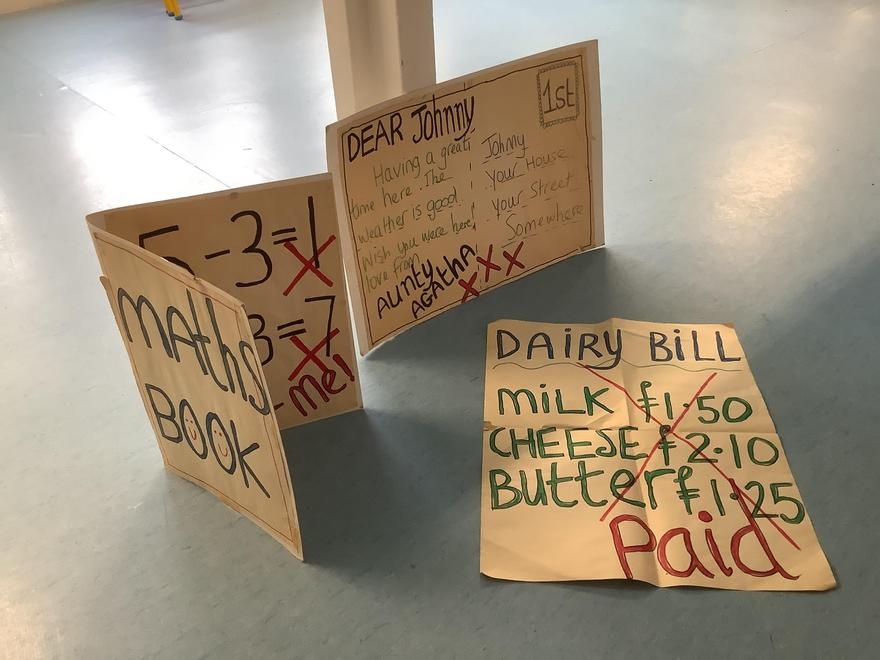 MAths
BOOK
5-3=1
3=7
me!
DEAR Johnny
Having a great
time here. The
weather is good
Wish you were here!
love from
AUNTY
AGATHA
x x x
1st
Johnny
Your House
Your Street
Somewhere
DAiRy BiLL
MiLK £1.50
CHEESE £2.10
Butter £1.25
Paid